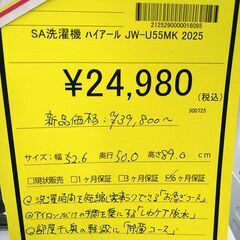 2125290000016095
SA洗濯機 ハイアール JW-U55MK 2025
¥24,980
(税込)
300725
新品価格:¥39,800~
サイズ:幅52.6 奥行50.0 高さ89.0 cm
□現状販売 □1ヶ月保証 □3ヶ月保証 ☑6ヶ月保証
◎洗濯時間を短縮、家事ラクできる「お急ぎコース」
◎アイロンがけの手間を楽にする「しわケア脱水」
◎部屋干し臭の軽減に「除菌コース」